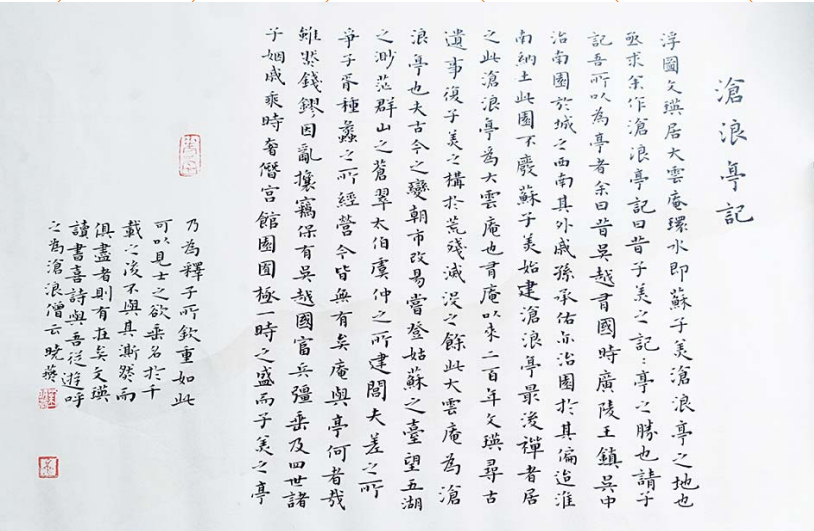 滄浪亭記
浮圖文瑛居大雲庵環水即蘇子美滄浪亭之地也
亟求余作滄浪亭記曰昔子美之記〻亭之勝也請子
記吾所以為亭者余曰昔吳越有國時廣陵王鎮吳中
治南園於城之西南其外戚孫承佑亦治園於其偏迨淮
南納土此園不廢蘇子美始建滄浪亭最後禪者居
之此滄浪亭為大雲庵也有庵以來二百年文瑛尋古
遺事復子美之構於荒殘滅沒之餘此大雲庵為滄
浪亭也夫古今之變朝市改易嘗登姑蘇之臺望五湖
之渺茫群山之蒼翠太伯虞仲之所建閭夫差之所
爭子胥種蠡之所經營今皆無有矣庵與亭何者哉
雖然錢鏐因亂攘竊保有吳越國富兵彊垂及四世諸
子姻戚乘時奢僭宮館園囿極一時之盛而子美之亭
乃為釋子所欽重如此
可以見士之欲垂名於千
載之後不與其澌然而
俱盡者則有在矣文瑛
讀書喜詩與吾徒遊呼
之為滄浪僧云曉燕